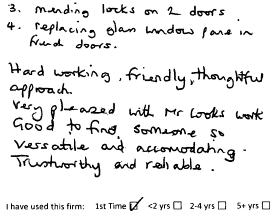 3. mending locks on 2 doors.
4. replacing glass window pane in
french doors.
Hard working, friendly, thoughtful
approach.
Very pleased with Mr Cooks work
Good to find someone so
versatile and accomodating.
Trustworthy and reliable.
I have used this firm: 1st Time <2 yrs 2-4 yrs 5+ yrs